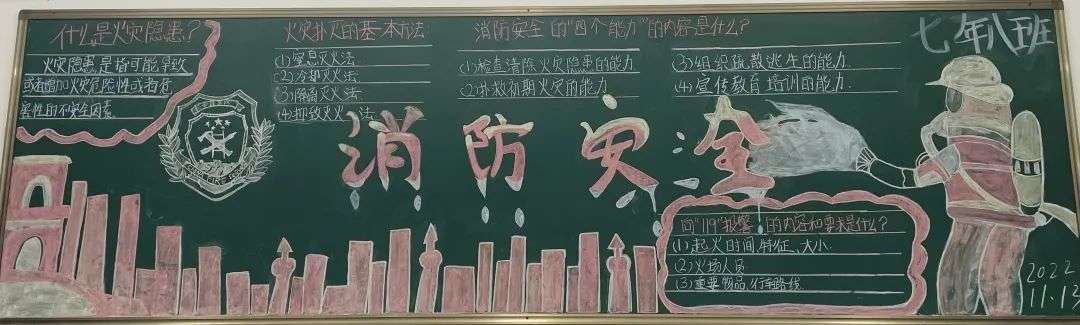 什么是火灾隐患?
火灾隐患是指可能导致
或者增加火灾危险性或者危
害性的不安全因素
火灾扑灭的基本方法
(1)窒息灭火法
(2)冷却灭火法
(3)隔离灭火法
(4)抑致灭火法
消防安全的"四个能力"的内容是什么?
(1)检查清除火灾隐患的能力
(2)扑救初期火灾的能力
(3)组织疏散逃生的能力
(4)宣传教育培训的能力
七年八班
消防安全
向"119"报警的内容和要求是什么?
(1)起火时间,特征,大小
(2)火场人员
(3)重要物品,行车路线
2022
11.13